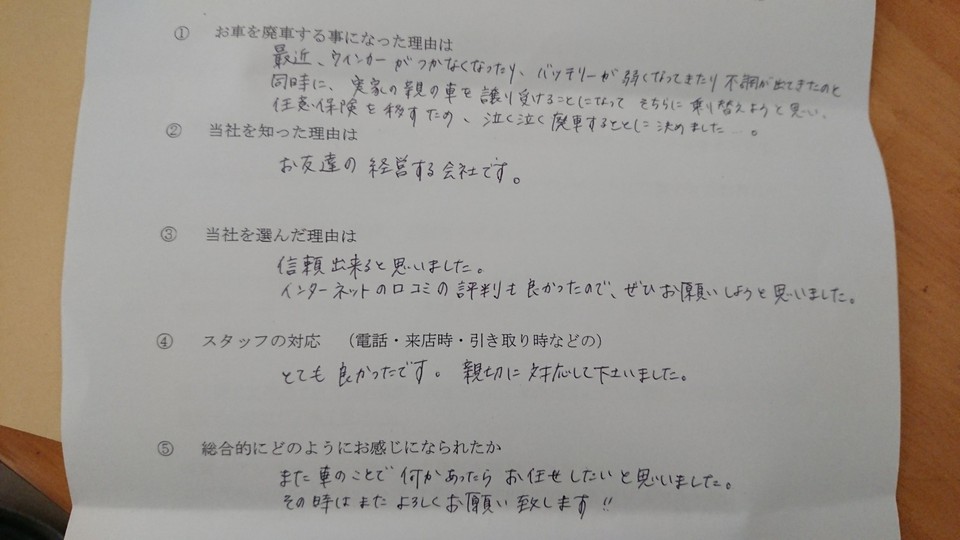 ① お車を廃車する事になった理由は
最近、ウインカーがつかなくなったり、バッテリーが弱くなってきたり不調が出てきたのと
同時に、実家の親の車を譲り受けることになって そちらに乗り替えようと思い、
任意保険を移すため、泣く泣く廃車することに決めました…。
② 当社を知った理由は
お友達の経営する会社です。
③ 当社を選んだ理由は
信頼出来ると思いました。
インターネットの口コミの評判も良かったので、ぜひお願いしようと思いました。
④ スタッフの対応 (電話・来店時・引き取り時などの)
とても良かったです。親切に対応して下さいました。
⑤ 総合的にどのようにお感じになられたか
また車のことで何かあったらお任せしたいと思いました。
その時はまたよろしくお願い致します!!